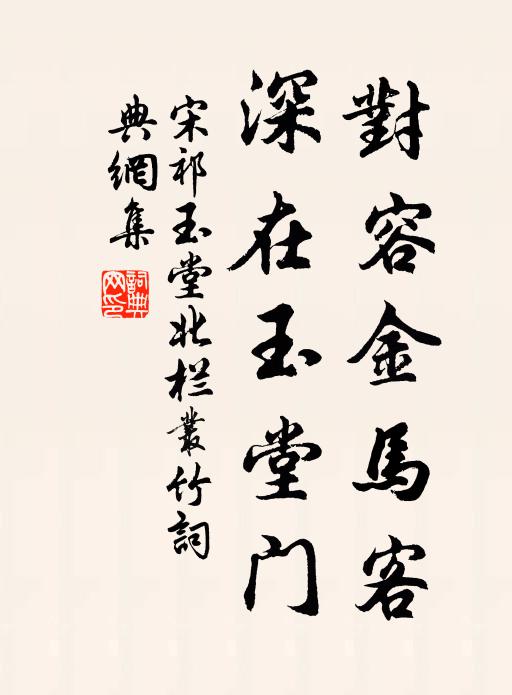 對容金馬客
深在玉堂门
宋祁玉堂北栏叢竹詞
典網集
詞典
网印